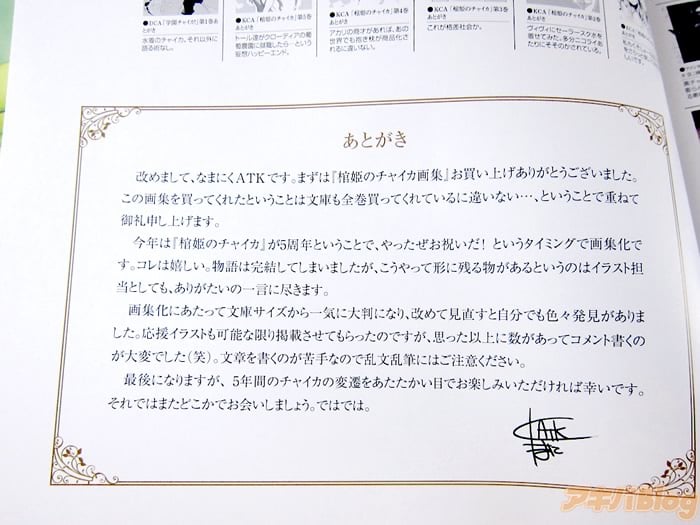 ●DCA「学園チャイカ」第1巻
あとがき
水着のチャイカ。それ以外に
語る術なし。
KCA「棺姫のチャイカ」第3巻
あとがき
トール達がクローディアの葡
萄農園に就職したら…という
妄想ハッピーエンド。
●KCA「棺姫のチャイカ」第4巻
あとがき
アカリの商才があれば、あの
世界でも抱き枕が商品化さ
れるに違いない。
●KCA「棺姫のチャイカ」第5巻
あとがき
これが格差社会か。
●KCA「棺姫のチャイカ」第2巻
あとがき
ヴィヴィにセーラースク水を
着せてみた。多分ニコライあ
たりにそそのかされている。
あとがき
改めまして、なまにくATKです。まずは『棺姫のチャイカ画集』お買い上げありがとうございました。
この画集を買ってくれたということは文庫も全巻買ってくれているに違いない…、ということで重ねて
御礼申し上げます。
今年は『棺姫のチャイカ』が5周年ということで、やったぜお祝いだ! というタイミングで画集化で
す。コレは嬉しい。物語は完結してしまいましたが、こうやって形に残る物があるというのはイラスト担
当としても、ありがたいの一言に尽きます。
画集化にあたって文庫サイズから一気に大判になり、改めて見直すと自分でも色々発見がありま
した。応援イラストも可能な限り掲載させてもらったのですが、思った以上に数があってコメント書くの
が大変でした(笑)。文章を書くのが苦手なので乱文乱筆にはご注意ください。
最後になりますが、5年間のチャイカの変遷をあたたかい目でお楽しみいただければ幸いです。
それではまたどこかでお会いしましょう。ではでは。
ATK
アキバBlog